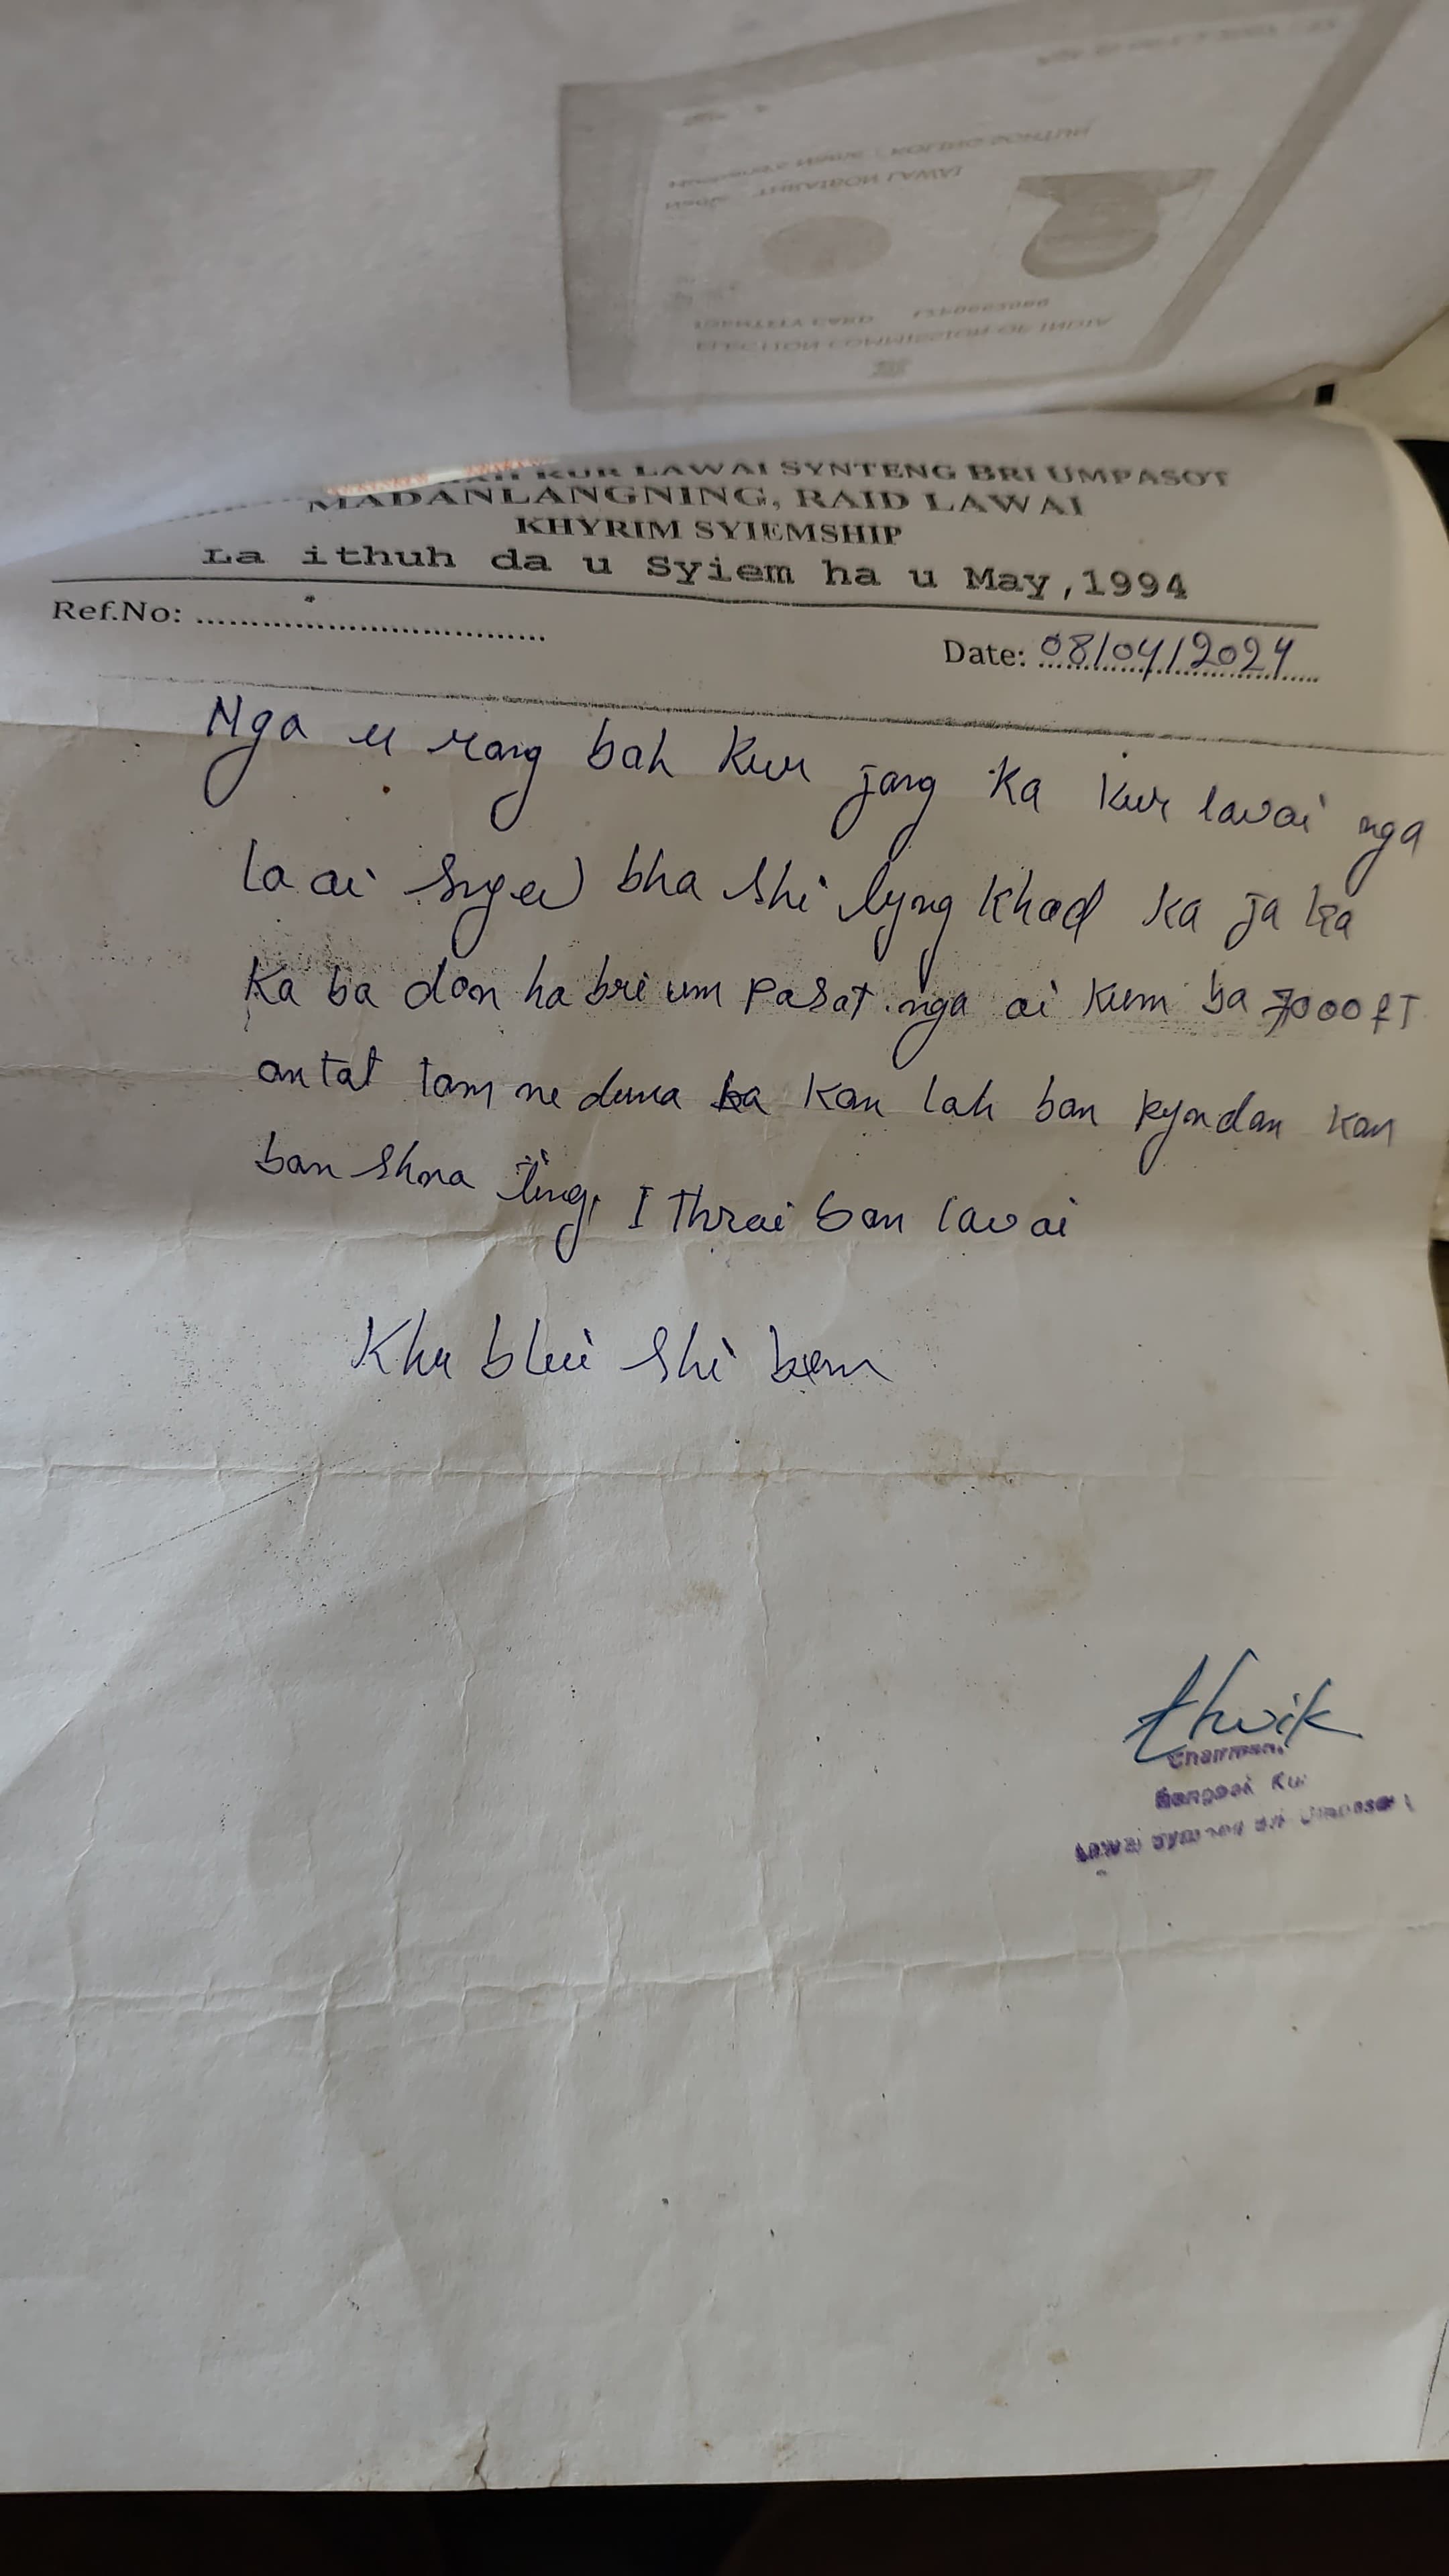 KUR LAWAI SYNTENG BRI UMPASOT
MADANLANGNING, RAID LAWAI
KHYRIM SYIEMSHIP
La ithuh da u Syiem ha u May,1994
Ref.No: ..................................
Date: 08/04/2024
Nga u rang bah kur jong ka kur lawai nga
la ai sngew bha shi lyng khod ka ja ka
ka ba don ha bri um Pasot nga ai kum ba 7000 fT
an tat tam ne duna ba kan lah ban pyndan kan
ban shna ïing, I Thrai ban lawai
Khu blei shi bun
Chairman,
Lawai
ELECTION COMMISSION OF INDIA
IDENTITY CARD
Name : THRAIBON LAWAI